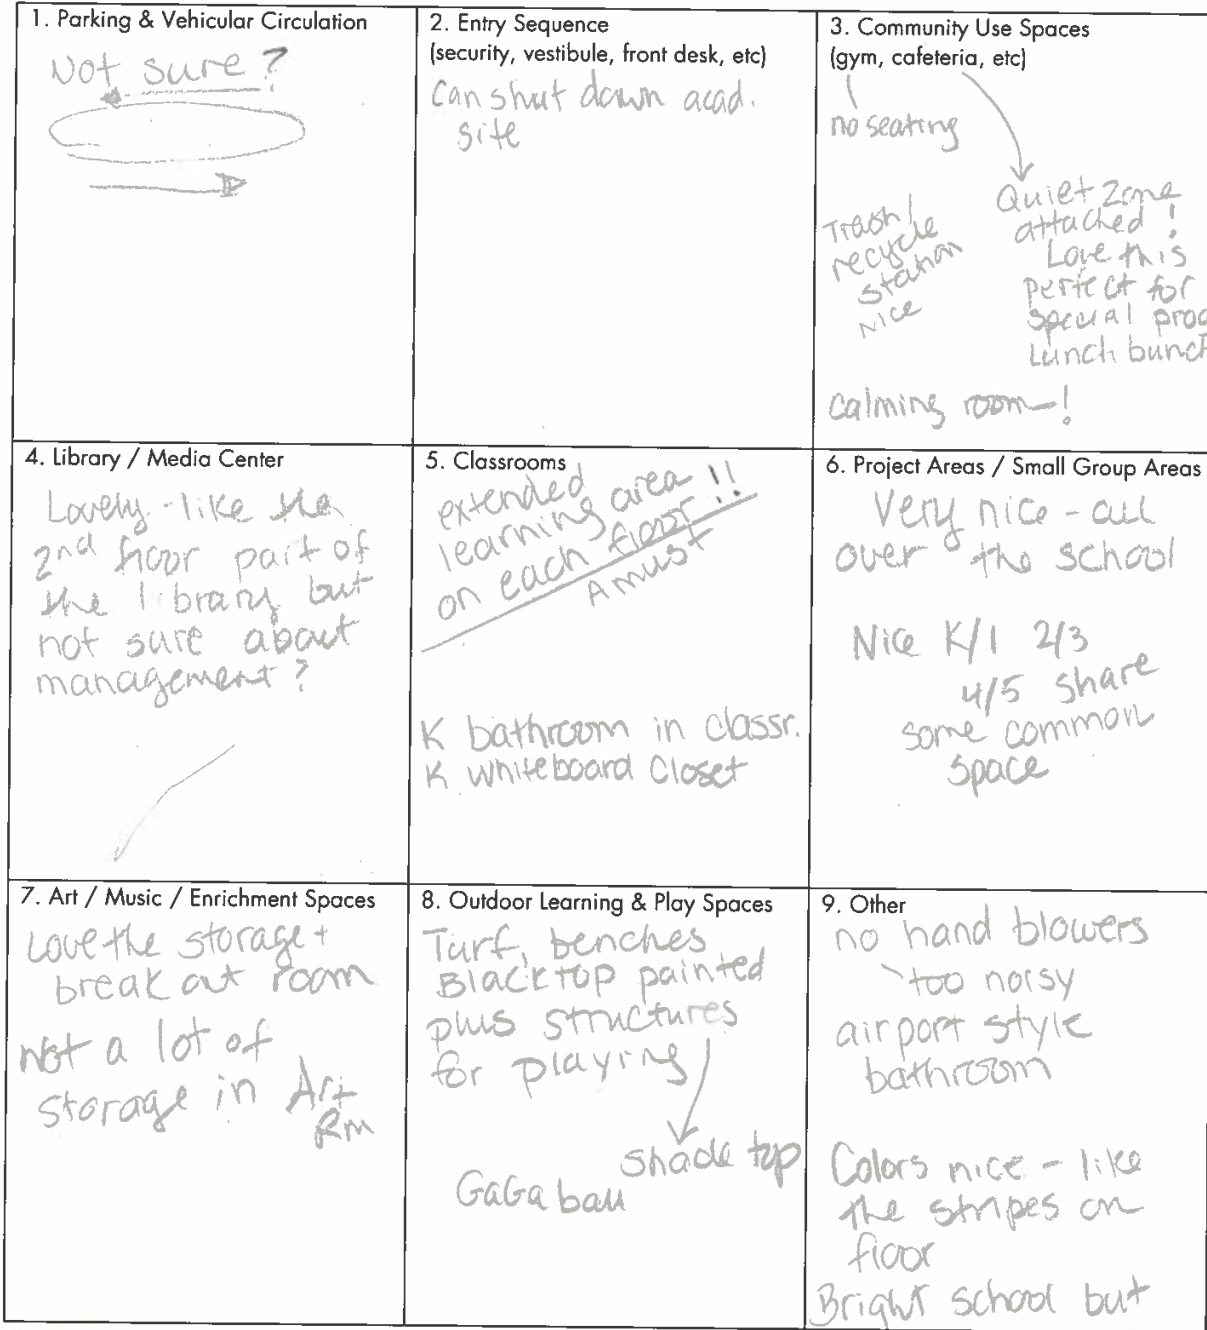 1. Parking & Vehicular Circulation
Not sure?
2. Entry Sequence
(security, vestibule, front desk, etc)
Can shut down acad.
site
3. Community Use Spaces
(gym, cafeteria, etc)
no seating
Trash/
recycle
station
nice
Quiet zone
attached!
Love this
perfect for
special prog
Lunch bunch
calming room-!
4. Library / Media Center
Lovely-like the
2nd floor part of
the library but
not sure about
management?
5. Classrooms
extended
learning area
on each floor!!
A must
K bathroom in classr.
K whiteboard closet
6. Project Areas / Small Group Areas
Very nice - all
over the school
Nice K/1 2/3
4/5 share
some common
space
7. Art / Music / Enrichment Spaces
Love the storage +
break out room
Not a lot of
storage in Art
Rm
8. Outdoor Learning & Play Spaces
Turf, benches
Blacktop painted
plus structures
for playing
shade top
GaGa ball
9. Other
no hand blowers
too noisy
airport style
bathroom
Colors nice - like
the stripes on
floor
Bright school but